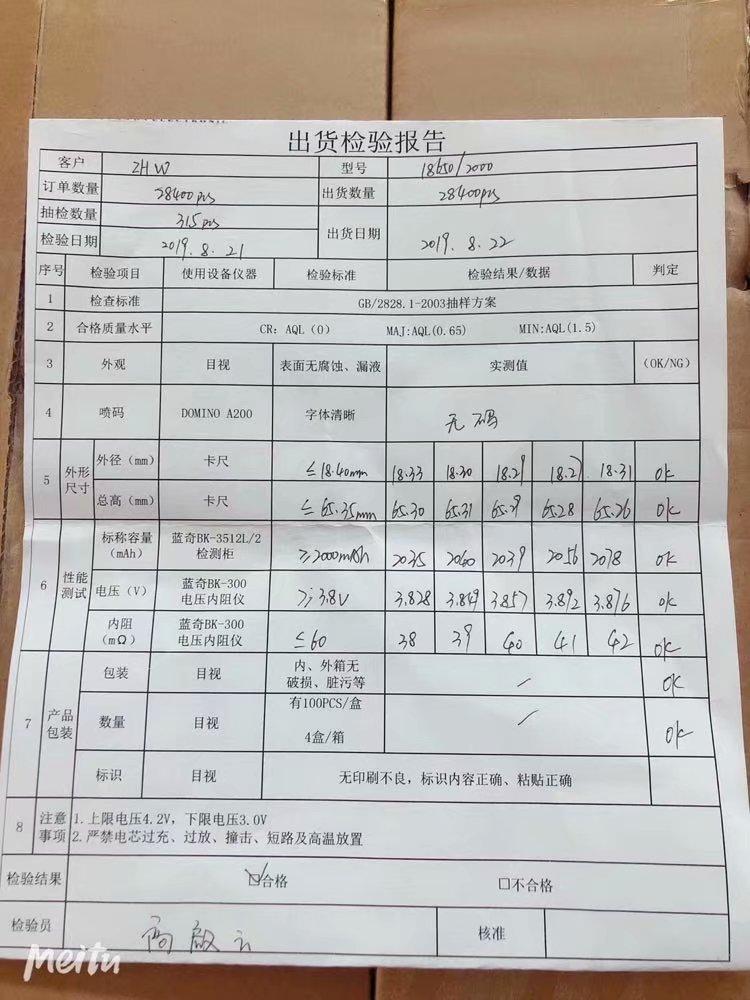 出货检验报告
客户 ZHW 型号 18650/2000
订单数量 28400pcs 出货数量 28400pcs
抽检数量 315pcs
检验日期 2019.8.21 出货日期 2019.8.22
序号 检验项目 使用设备仪器 检验标准 检验结果/数据 判定
1 检查标准 GB/2828.1-2003抽样方案
2 合格质量水平 CR: AQL (0) MAJ:AQL(0.65) MIN:AQL(1.5)
3 外观 目视 表面无腐蚀、漏液 实测值 (OK/NG)
4 喷码 DOMINO A200 字体清晰 无码
5 外形尺寸 外径(mm) 卡尺 ≤18.40mm 18.33 18.30 18.29 18.27 18.31 OK
总高(mm) 卡尺 ≤65.35mm 65.30 65.31 65.29 65.28 65.26 OK
6 性能测试 标称容量(mAh) 蓝奇BK-3512L/2检测柜 ≥2000mAh 2035 2060 2039 2056 2078 OK
电压(V) 蓝奇BK-300电压内阻仪 ≥3.8V 3.828 3.849 3.857 3.892 3.876 OK
内阻(mΩ) 蓝奇BK-300电压内阻仪 ≤60 38 39 40 41 42 OK
7 产品包装 包装 目视 内、外箱无破损、脏污等 / OK
数量 目视 有100PCS/盒 4盒/箱 / OK
标识 目视 无印刷不良，标识内容正确、粘贴正确
8 注意事项 1.上限电压4.2V，下限电压3.0V
2.严禁电芯过充、过放、撞击、短路及高温放置
检验结果 ☑合格 □不合格
检验员 核准
Meitu